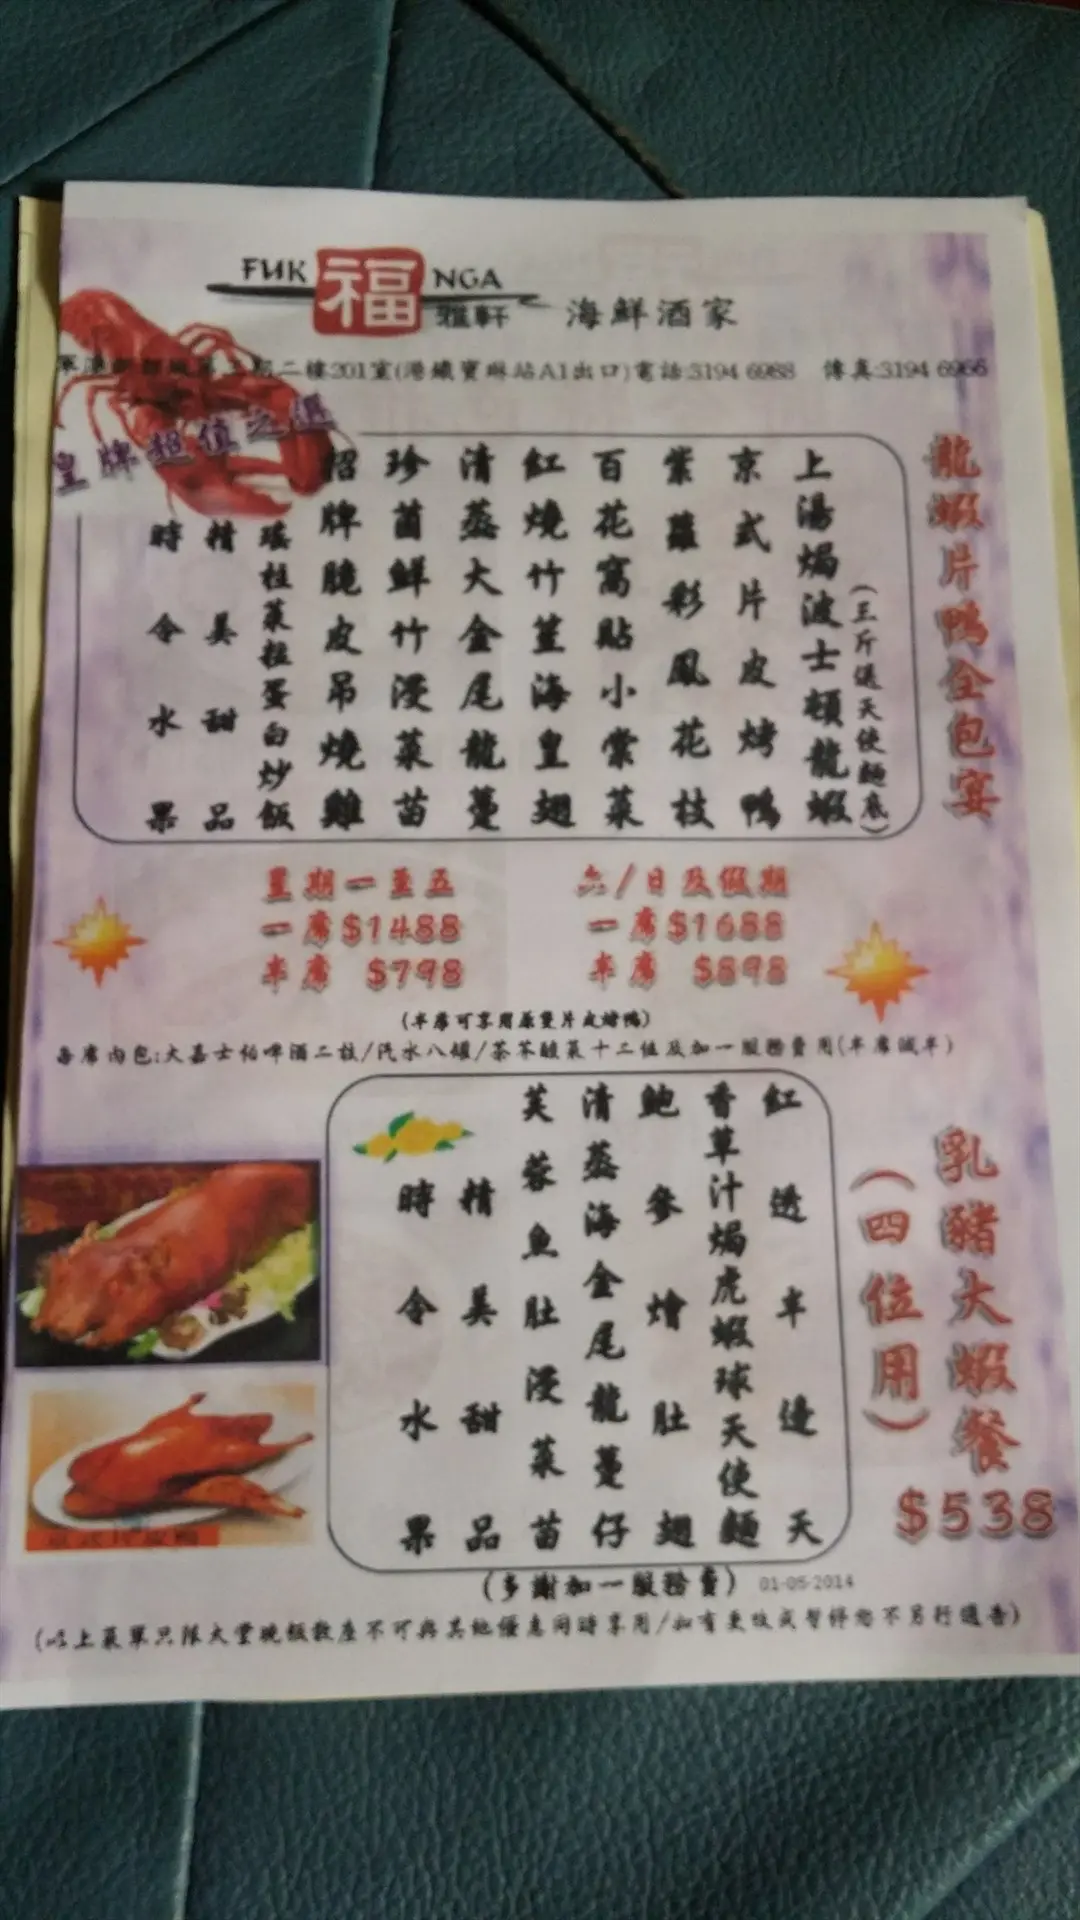 FUK 福 NGA
雅軒 海鮮酒家
二樓201室(港鐵寶琳站A1出口)電話:3194 6988 傳真:3194 6966
皇牌超值之選
龍蝦片鴨全包宴
上湯焗波士頓龍蝦
(三斤送天使麵底)
京式片皮烤鴨
紫蘿彩鳳花枝
百花窩貼小棠菜
紅燒竹笙海皇翅
清蒸大金尾龍躉
珍菌鮮竹浸菜苗
招牌脆皮吊燒雞
瑤柱菜粒蛋白炒飯
精美甜品
時令水果
星期一至五
一席$1488
半席 $798
六/日及假期
一席$1688
半席 $898
(半席可享用原隻片皮烤鴨)
每席內包:大嘉士伯啤酒二枝/汽水八罐/茶芥酸菜十二位及加一服務費用(半席減半)
乳豬大蝦餐
(四位用)
$538
紅透半邊天
香草汁焗虎蝦球天使麵
鮑參燴肚翅
清蒸海金尾龍躉仔
芙蓉魚肚浸菜苗
精美甜品
時令水果
(多謝加一服務費) 01-05-2014
(以上菜單只限大堂晚飯散座不可與其他優惠同時享用/如有更改或暫停恕不另行通告)